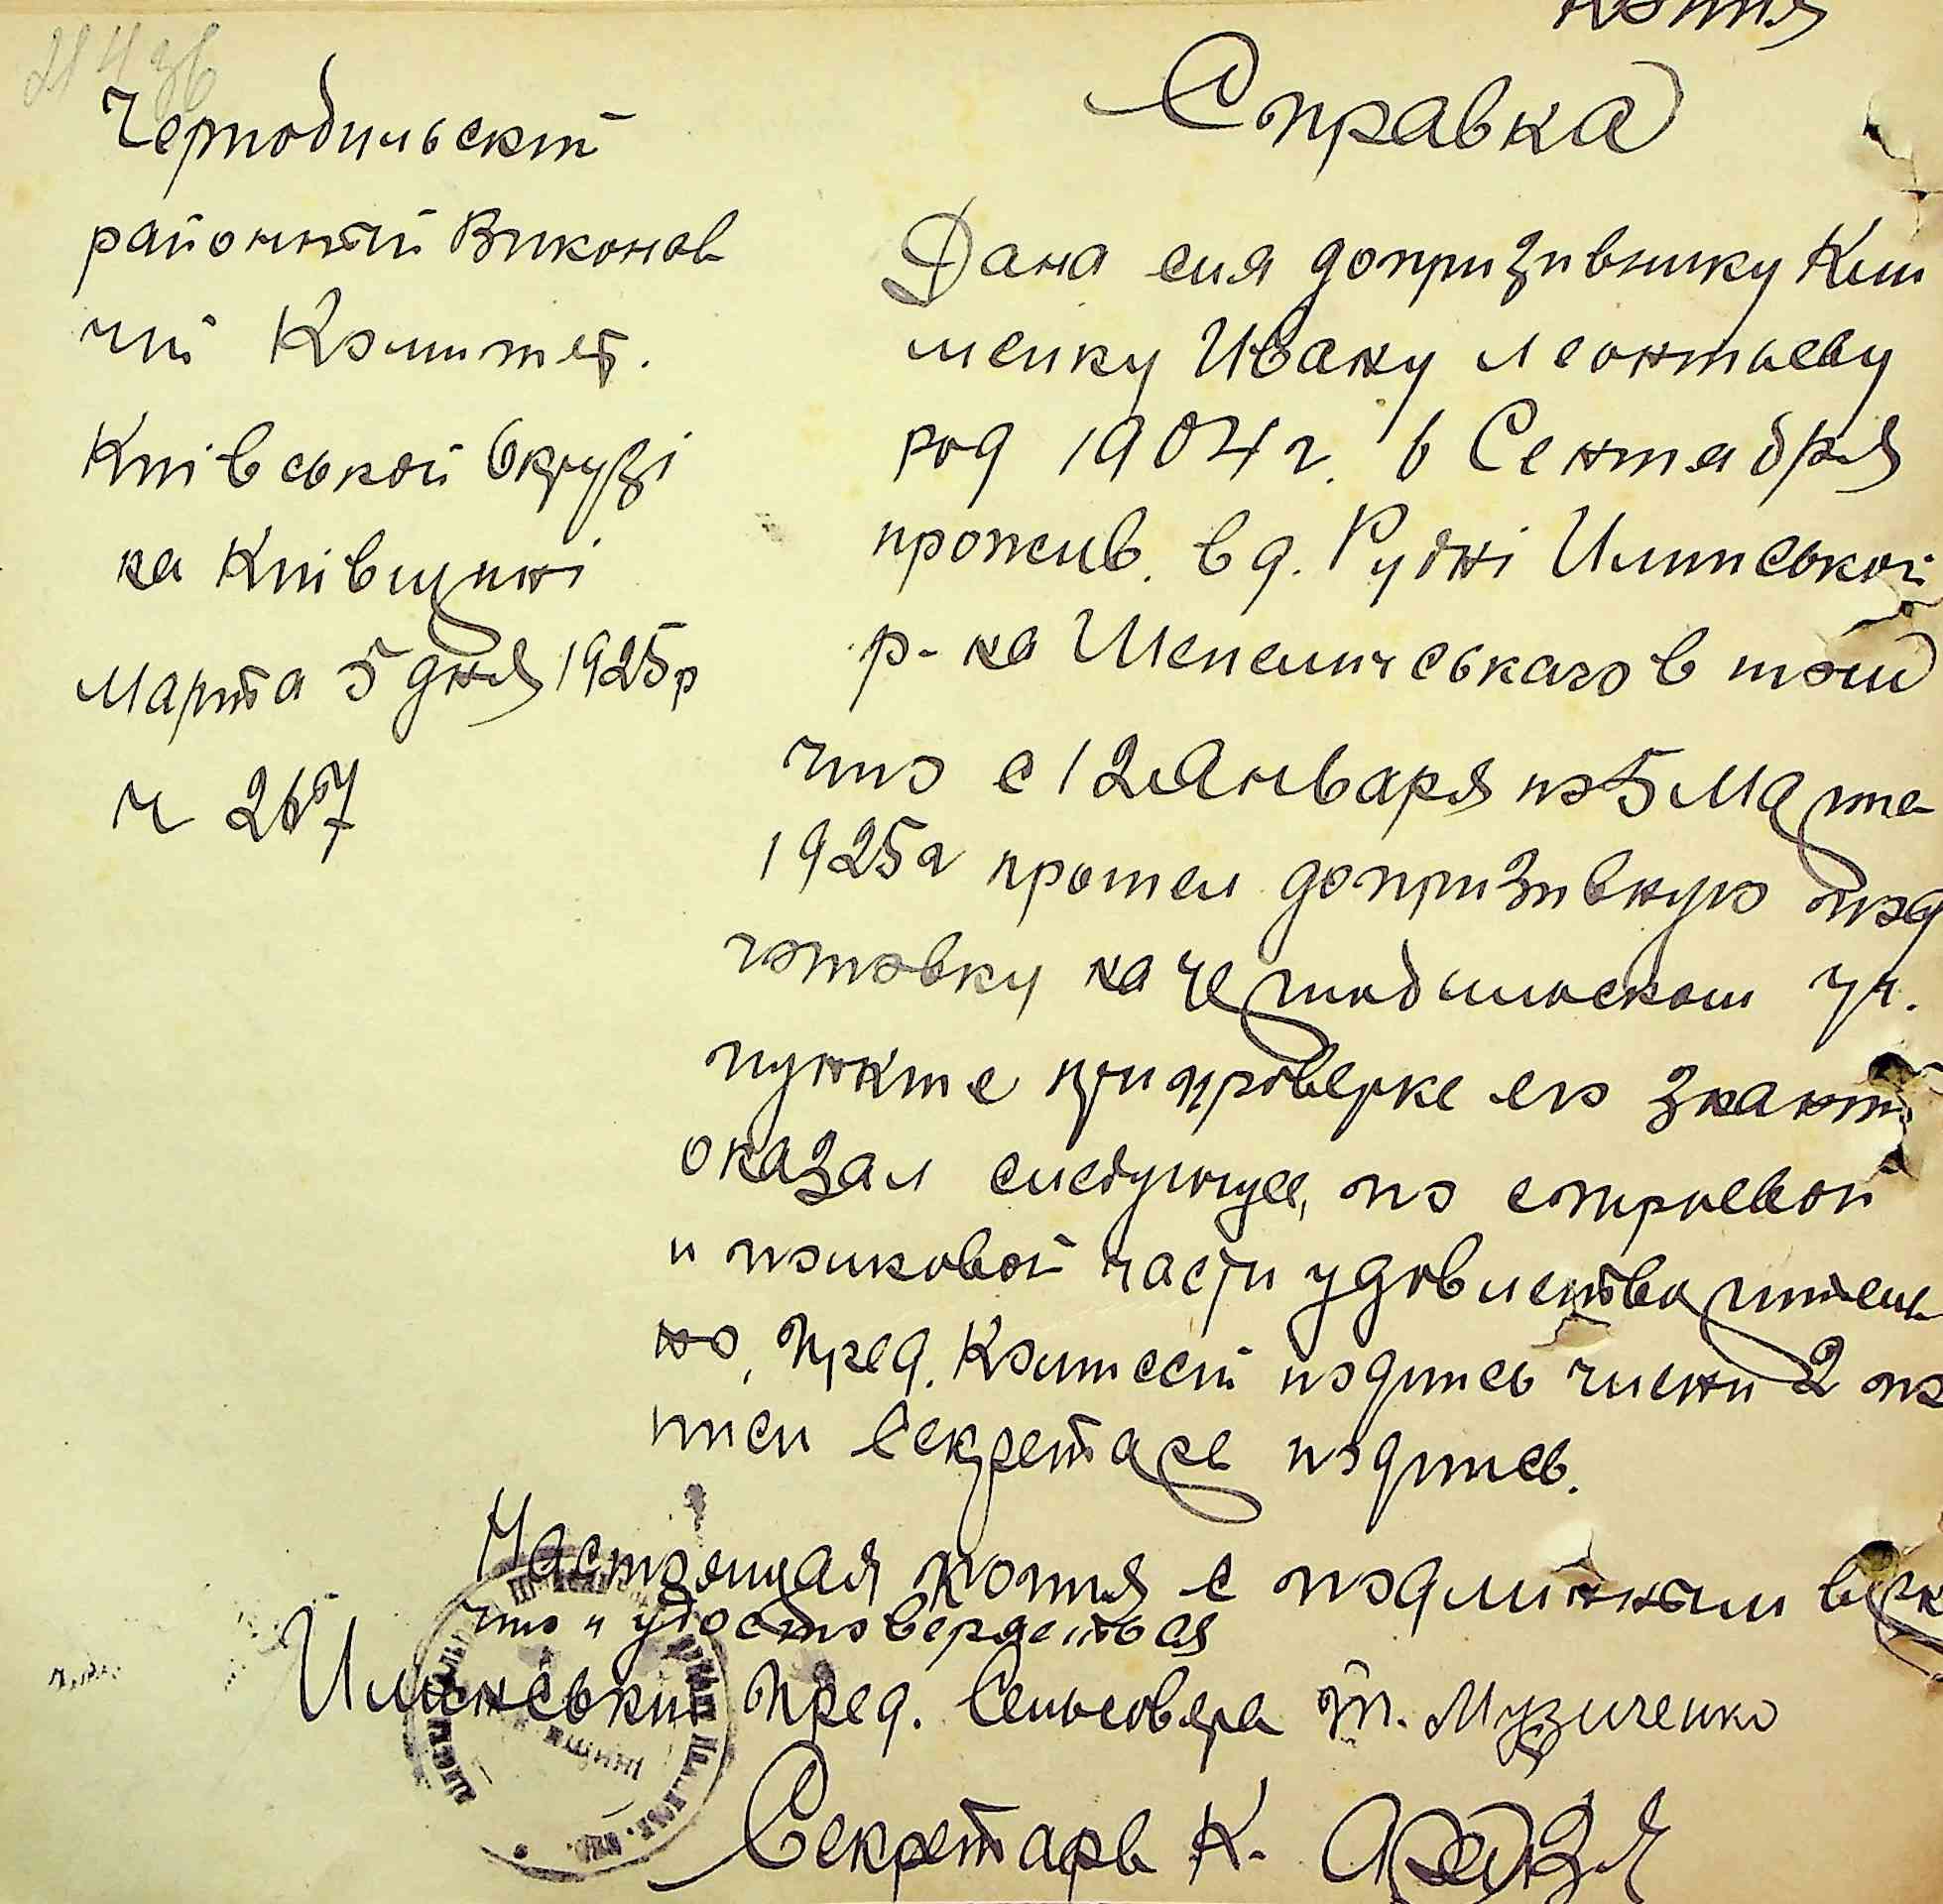 копия
Справка
Чернобильский
районный Виконав
чий Комитет.
Киівськой Окрузі
на Киівщині
Марта 5 дня 1925 р
ч 267
Дана сия допризивнику Кли
менку Ивану Леонтьеву
род 1904 г. в Сентября
прожив. в д. Рудні Илинськой
р-на Шепеличськаго в том
что с 12 Января по 5 Марта
1925 г прошел допризивную под
готовку на Чернобильском уч.
пункте при проверке его знаний
оказал следующее, по строевой
и полковой части удовлетворитель
но, Пред. Комиссии подпись члени 2 по
писи Секретарь подпись.
Настоящая копия с подлинным верн
что и удостоверяеться
Илинський Пред. Сельсовера Музиченко
Секретарь К.